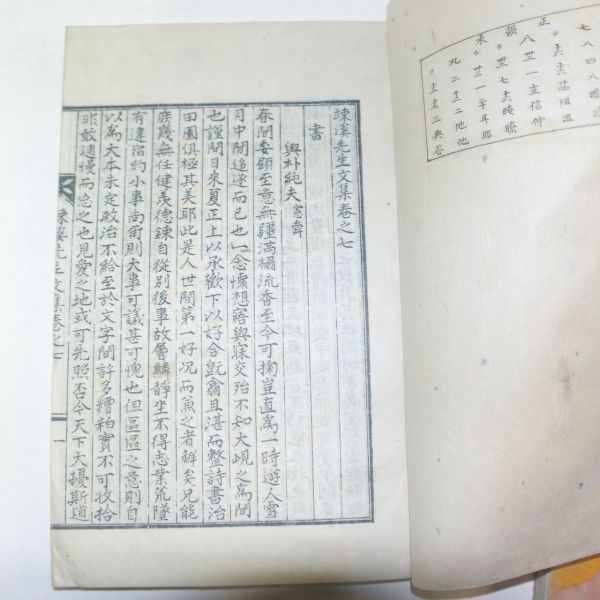 七八四八
正
八 卅一 主信仲
韻 卅七
末 卅一
九 二 十二 地他
十 主 主 二 與答
竦溪先生文集卷之七
書
與朴純夫憲舜
春間委顧至意無疆滿榻流香至今可掬豈直爲一時遊人雪
月中間追逐而已也一念懷想寤與寐交殆不如大峴之爲間
也謹問日來夏正上以承歡下以好合旣翕且湛而整詩書治
田園俱極其美耶此是人世間第一好况而兼之者鮮矣兄能
庶幾無任健羡德鍊自從別後事故層鱗靜坐不得志業荒墜
有違宿約小事尚爾則大事可議甚可愧也但區區之意則自
以爲大本未定政治不給至於文字間許多糟粕實不可收拾
非敢逋慢而忘之也見愛之地或可先照否今天下大擾斯道
竦溪先生文集卷之七
一